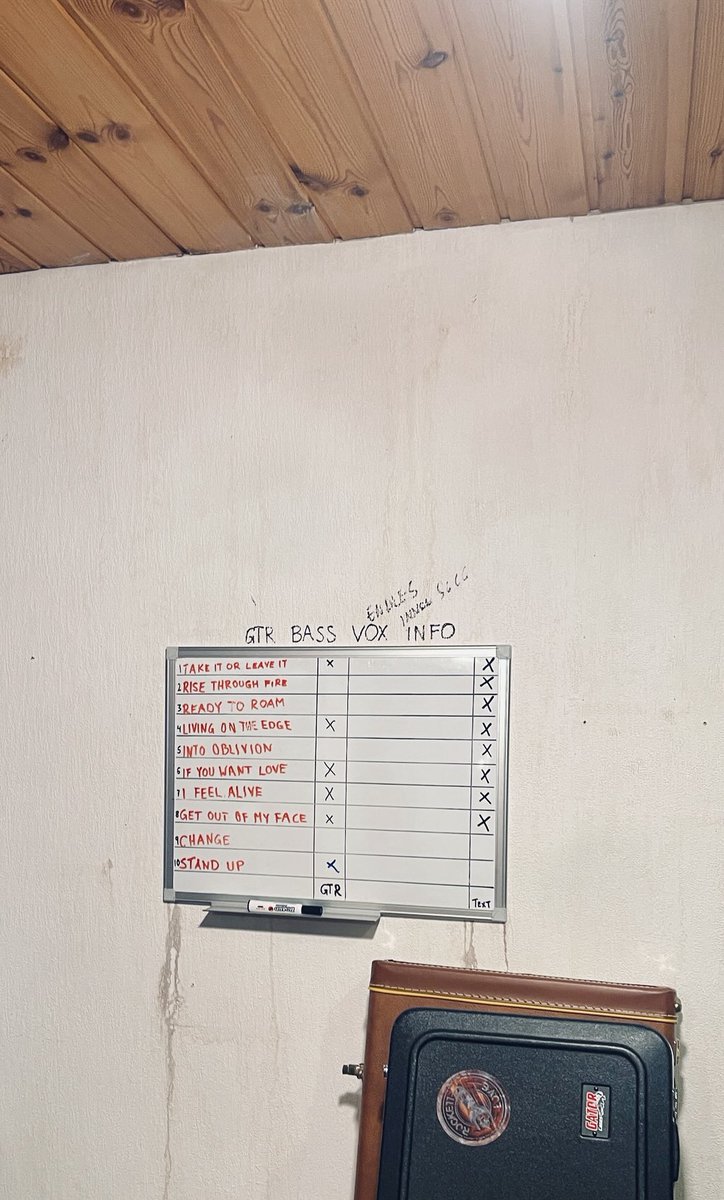 GTR BASS VOX INFO
1 TAKE IT OR LEAVE IT X X
2 RISE THROUGH FIRE X
3 READY TO ROAM X
4 LIVING ON THE EDGE X X
5 INTO OBLIVION X
6 IF YOU WANT LOVE X X
7 I FEEL ALIVE X X
8 GET OUT OF MY FACE X X
9 CHANGE
10 STAND UP X
GTR TEXT
LOVE
ROCKETT
GATOR